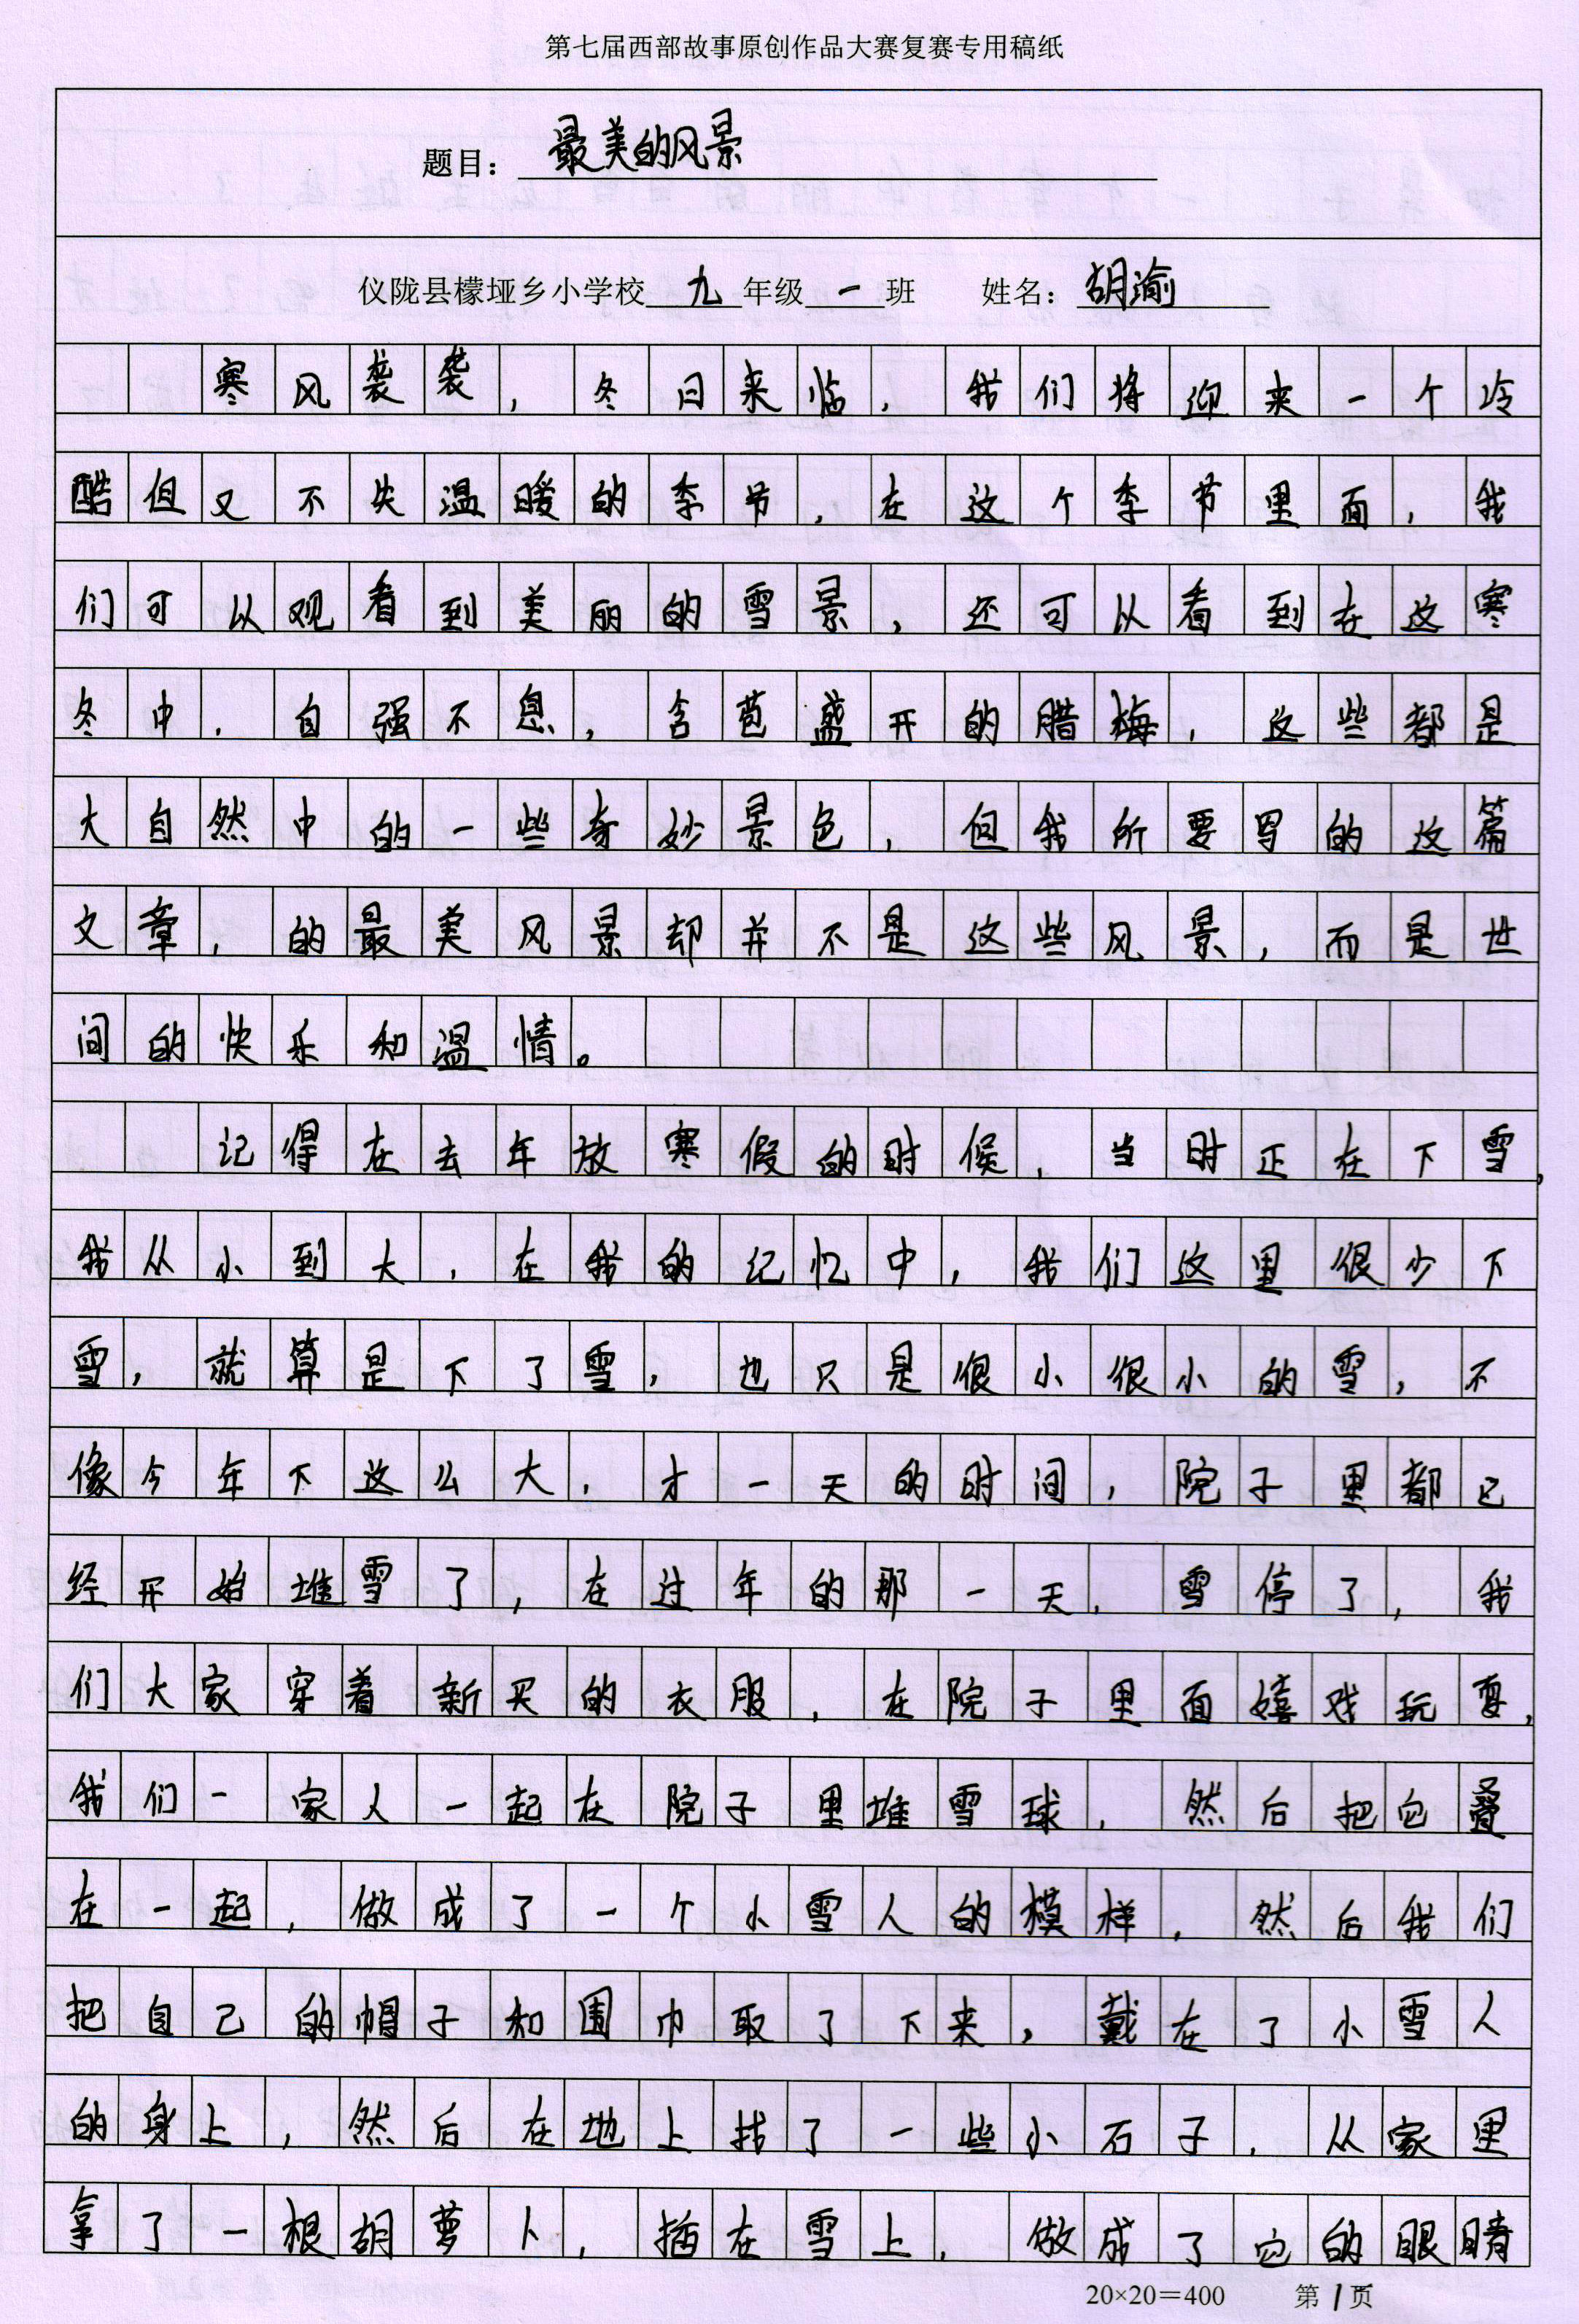 第七届西部故事原创作品大赛复赛专用稿纸
题目：最美的风景
仪陇县檬垭乡小学校 九 年级 一 班 姓名：胡渝
寒风袭袭，冬日来临，我们将迎来一个冷
酷但又不失温暖的季节，在这个季节里面，我
们可以观看到美丽的雪景，还可以看到在这寒
冬中，自强不息，含苞盛开的腊梅，这些都是
大自然中的一些奇妙景色，但我所要写的这篇
文章，的最美风景却并不是这些风景，而是世
间的快乐和温情。
记得在去年放寒假的时候，当时正在下雪，
我从小到大，在我的记忆中，我们这里很少下
雪，就算是下了雪，也只是很小很小的雪，不
像今年下这么大，才一天的时间，院子里都已
经开始堆雪了，在过年的那一天，雪停了，我
们大家穿着新买的衣服，在院子里面嬉戏玩耍，
我们一家人一起在院子里堆雪球，然后把它叠
在一起，做成了一个小雪人的模样，然后我们
把自己的帽子和围巾取了下来，戴在了小雪人
的身上，然后在地上找了一些小石子，从家里
拿了一根胡萝卜，插在雪上，做成了它的眼睛
20×20＝400 第1页